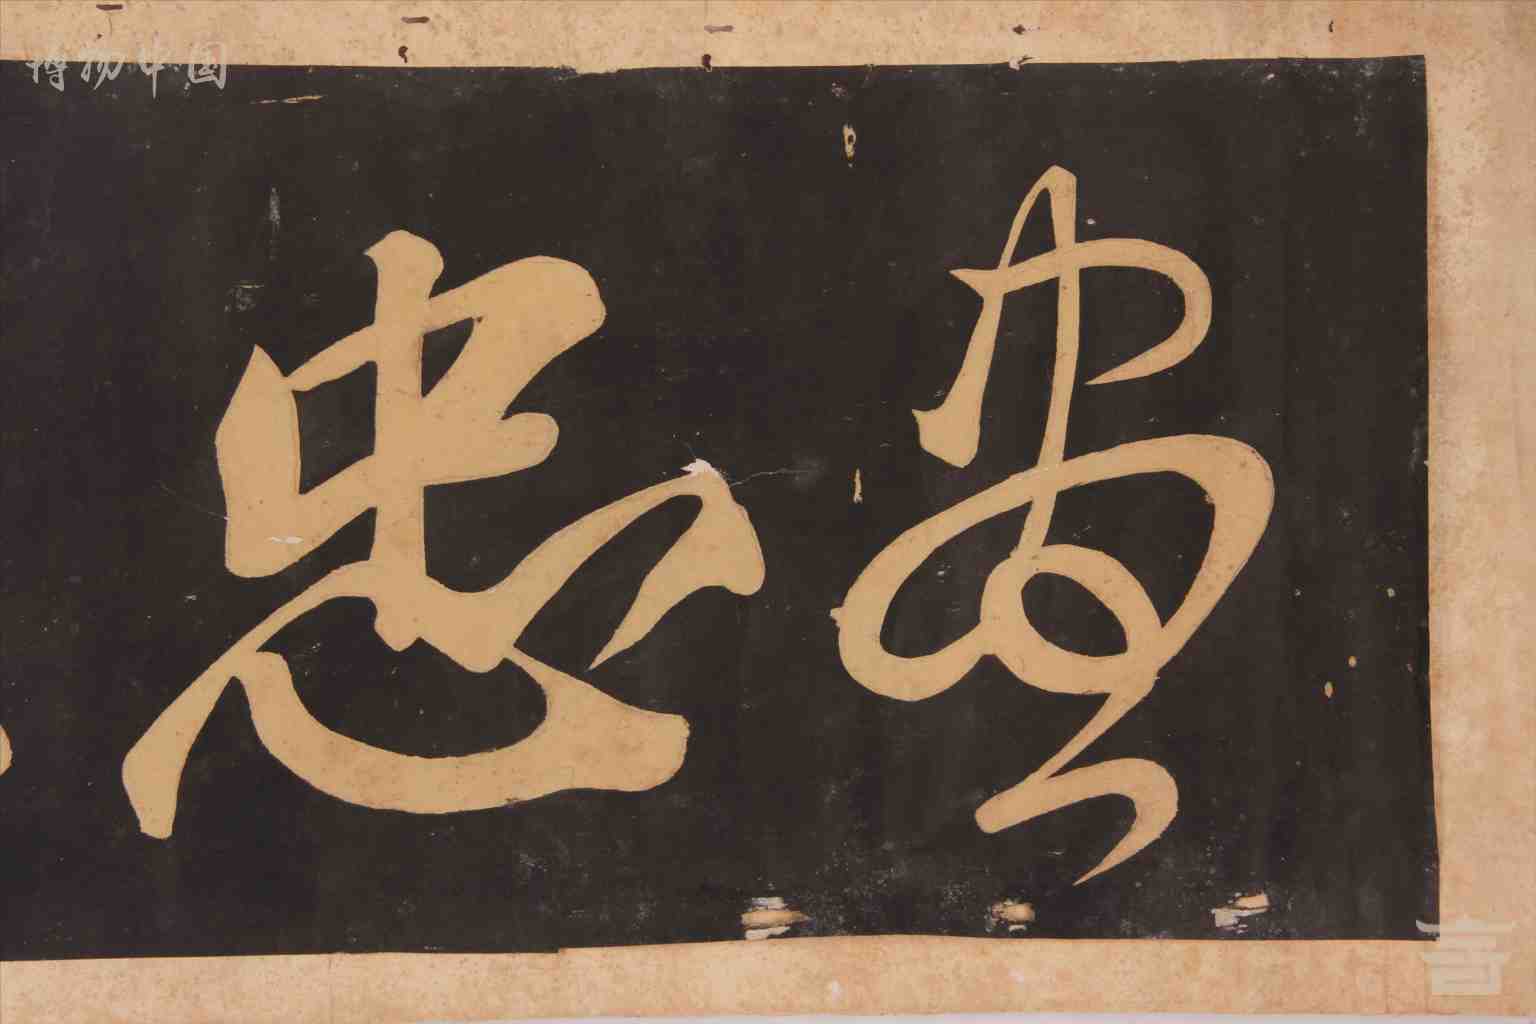 博物中国
盡忠